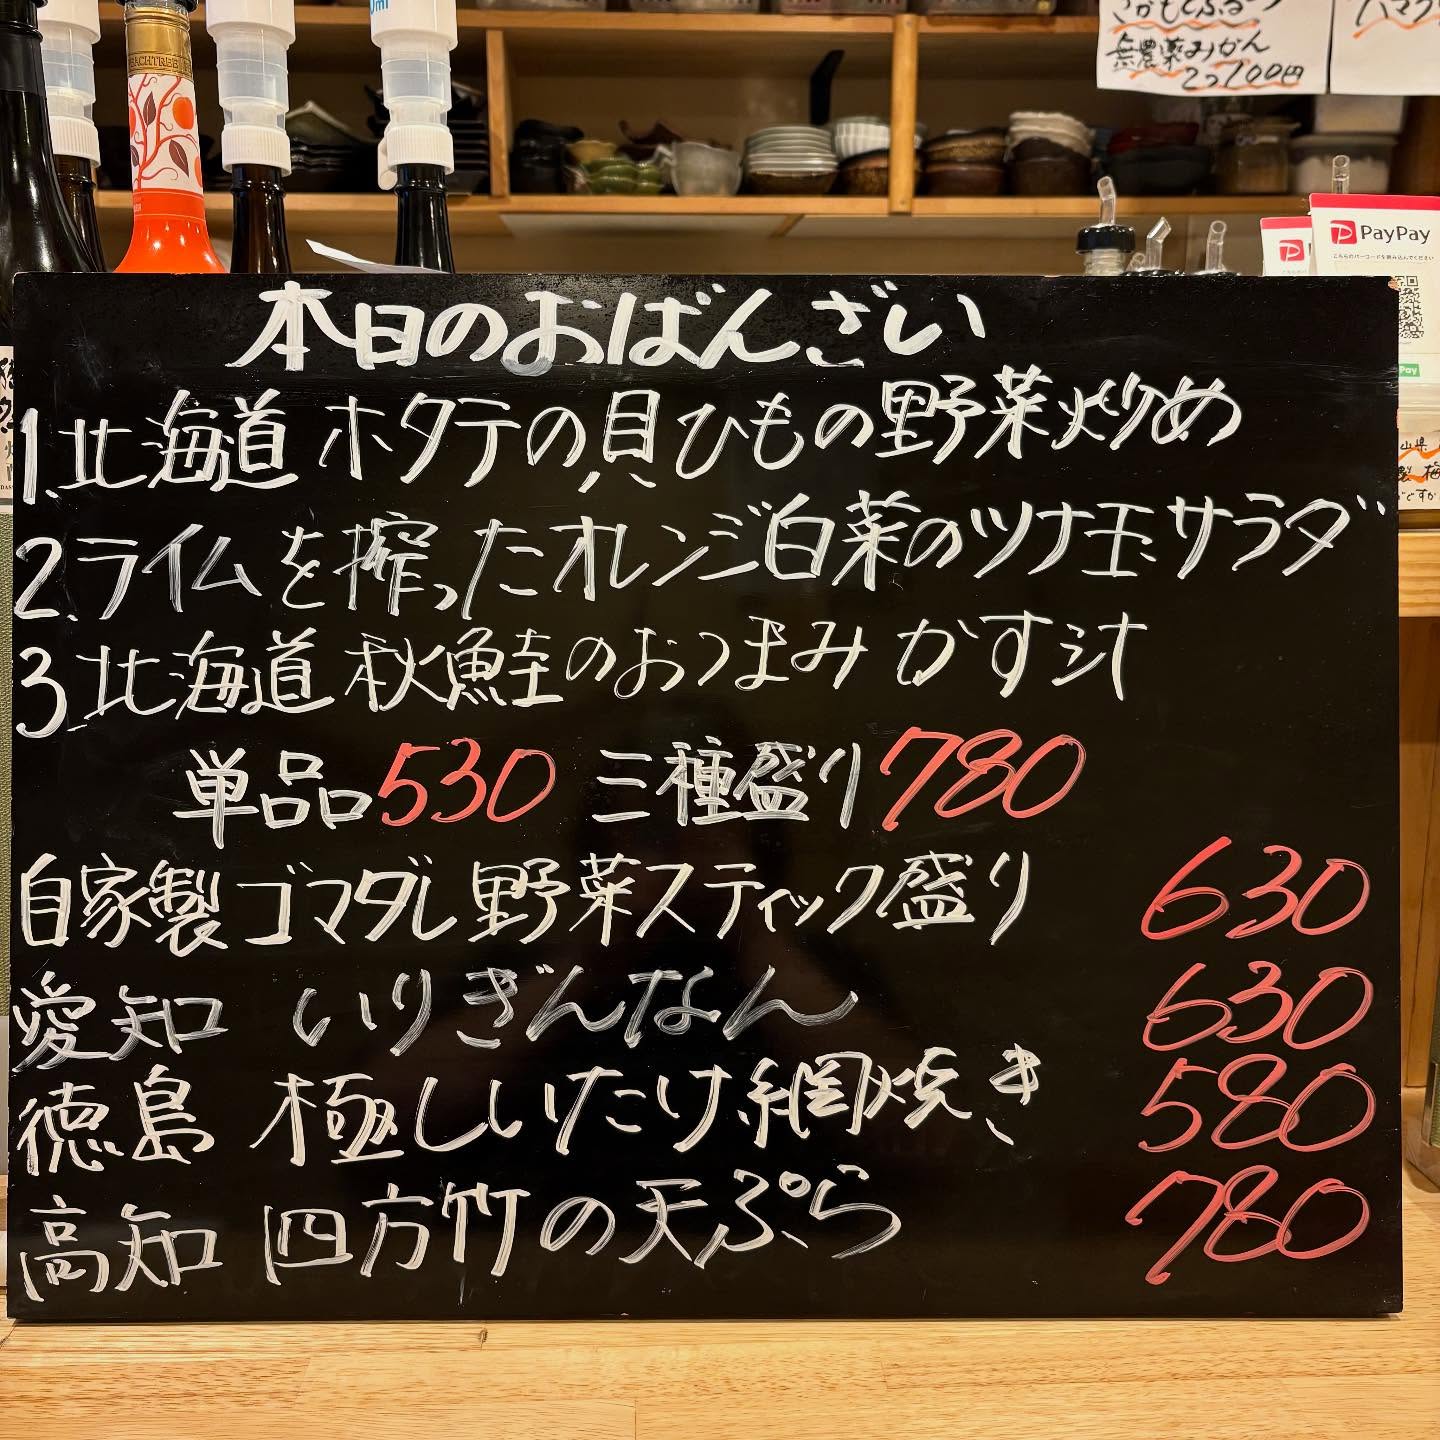 無農薬みかん
2つ100円
PayPay
本日のおばんざい
1.北海道 ホタテの貝ひもの野菜炒め
2.ライムを搾ったオレンジ白菜のツナ玉サラダ
3.北海道 秋鮭のおつまみ かす汁
単品530 三種盛り780
自家製ゴマダレ野菜スティック盛り 630
愛知 いりぎんなん 630
徳島 極ししいたけ網焼き 580
高知 四方竹の天ぷら 780